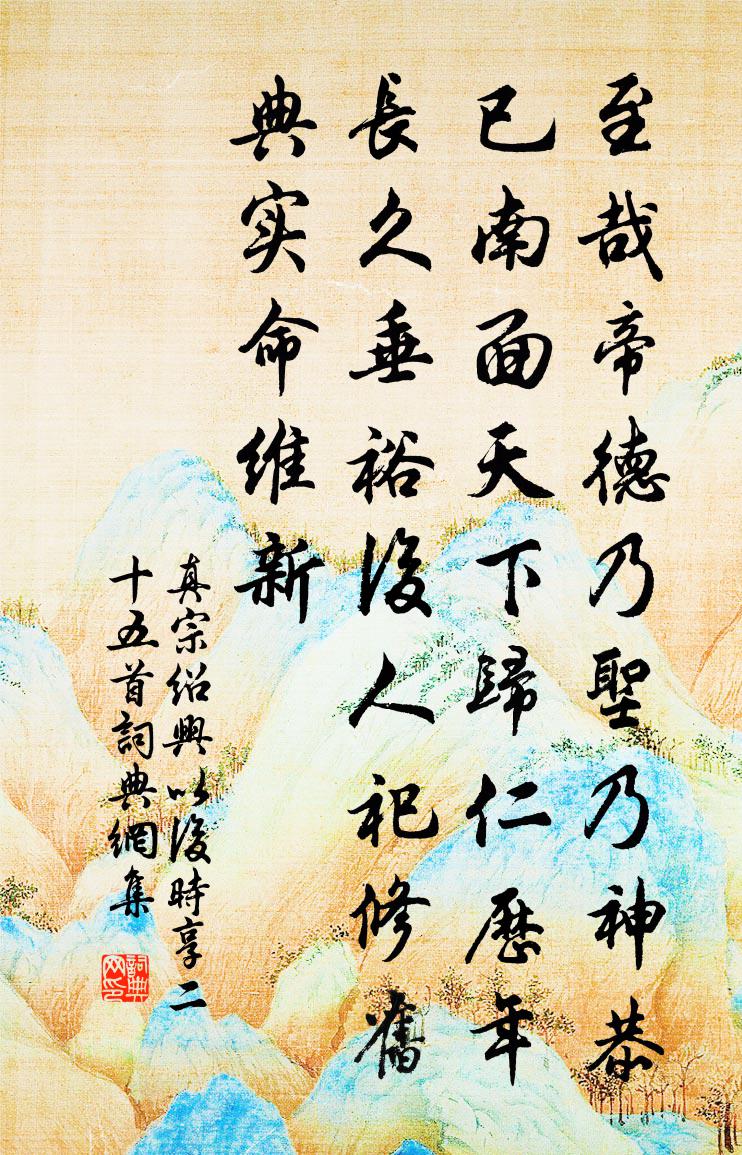 至哉帝德乃聖乃神恭
已南面天下歸仁歷年
長久垂裕後人祀修舊
典实命維新
真宗绍興以後時享二
十五首詞典網集
詞典
网印